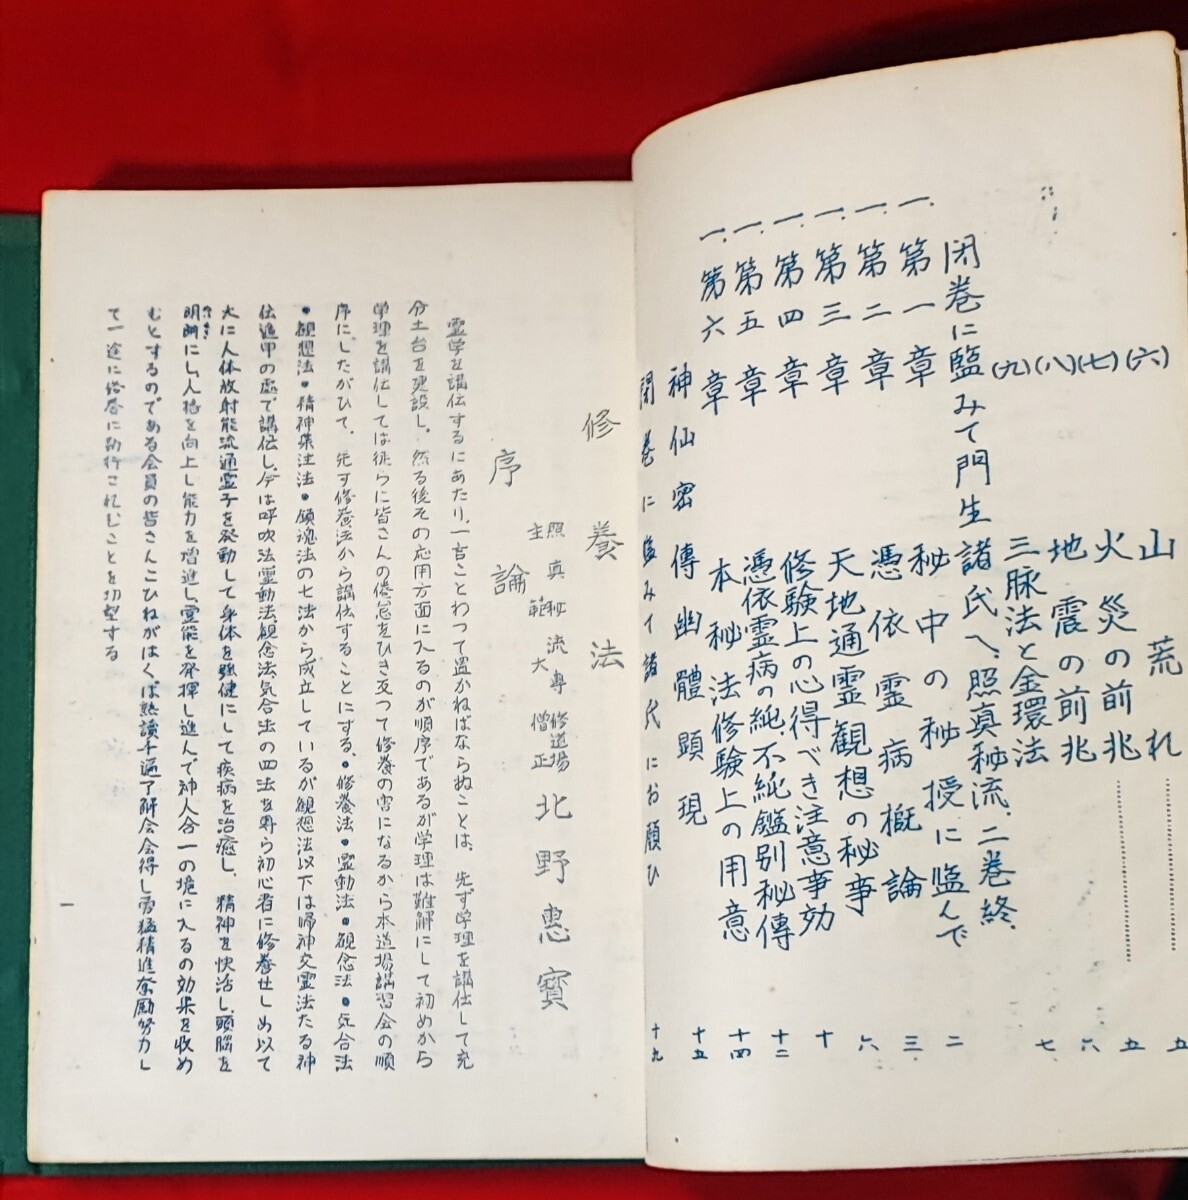 (六) 山荒れ 五
(七) 火災の前兆 五
(八) 地震の前兆 六
(九) 三脉法と金環法 七
閉巻に臨みて門生諸氏へ、照真秘流、二巻終、
一、第一章 秘中の秘授に臨んで 二
一、第二章 憑依霊病概論 三
一、第三章 天地通霊観想の秘事 六
一、第四章 修験上の心得べき注意事効 十
一、第五章 憑依霊病の純、不純鑑別秘傳 十二
一、第六章 本秘法修験上の用意 十四
神仙密傳幽體顕現 十五
閉巻に臨みて諸氏にお願ひ 十九
修養法
照真秘流専修道場
主範 大僧正 北野恵寶
序論
霊学を講伝するにあたり、一言ことわつて置かねばならぬことは、先ず学理を講伝して充
分土台を建設し、然る後その応用方面に入るのが順序であるが学理は難解にして初めから
学理を講伝しては徒らに皆さんの倦怠をひき互つて修養の害になるから本道場講習会の順
序にしたがひて、先ず修養法から講伝することにする、修養法・霊動法・観念法・気合法
・観想法・精神集注法・鎮魂法の七法から成立しているが観想法以下は帰神交霊法たる神
伝進甲の處で講伝し、今は呼吹法霊動法観念法気合法の四法を専ら初心者に修養せしめ以て
大に人体放射能流通霊子を発動して身体を強健にして疾病を治癒し、精神を快活し、頭脳を
明晰にし、人格を向上し能力を増進し、霊能を発揮し進んで神人合一の境に入るの効果を収め
むとするのである会員の皆さんこひねがはくば熟讀千遍了解会得し勇猛精進奈励努力し
て一途に修養に励行されむことを切望する
一